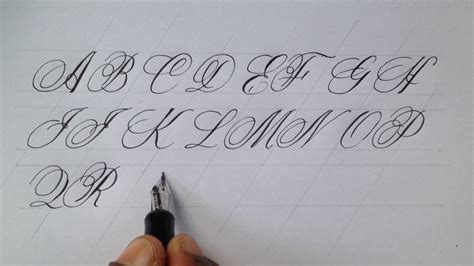 A B C D E F G H
I J K L M N O P
Q R